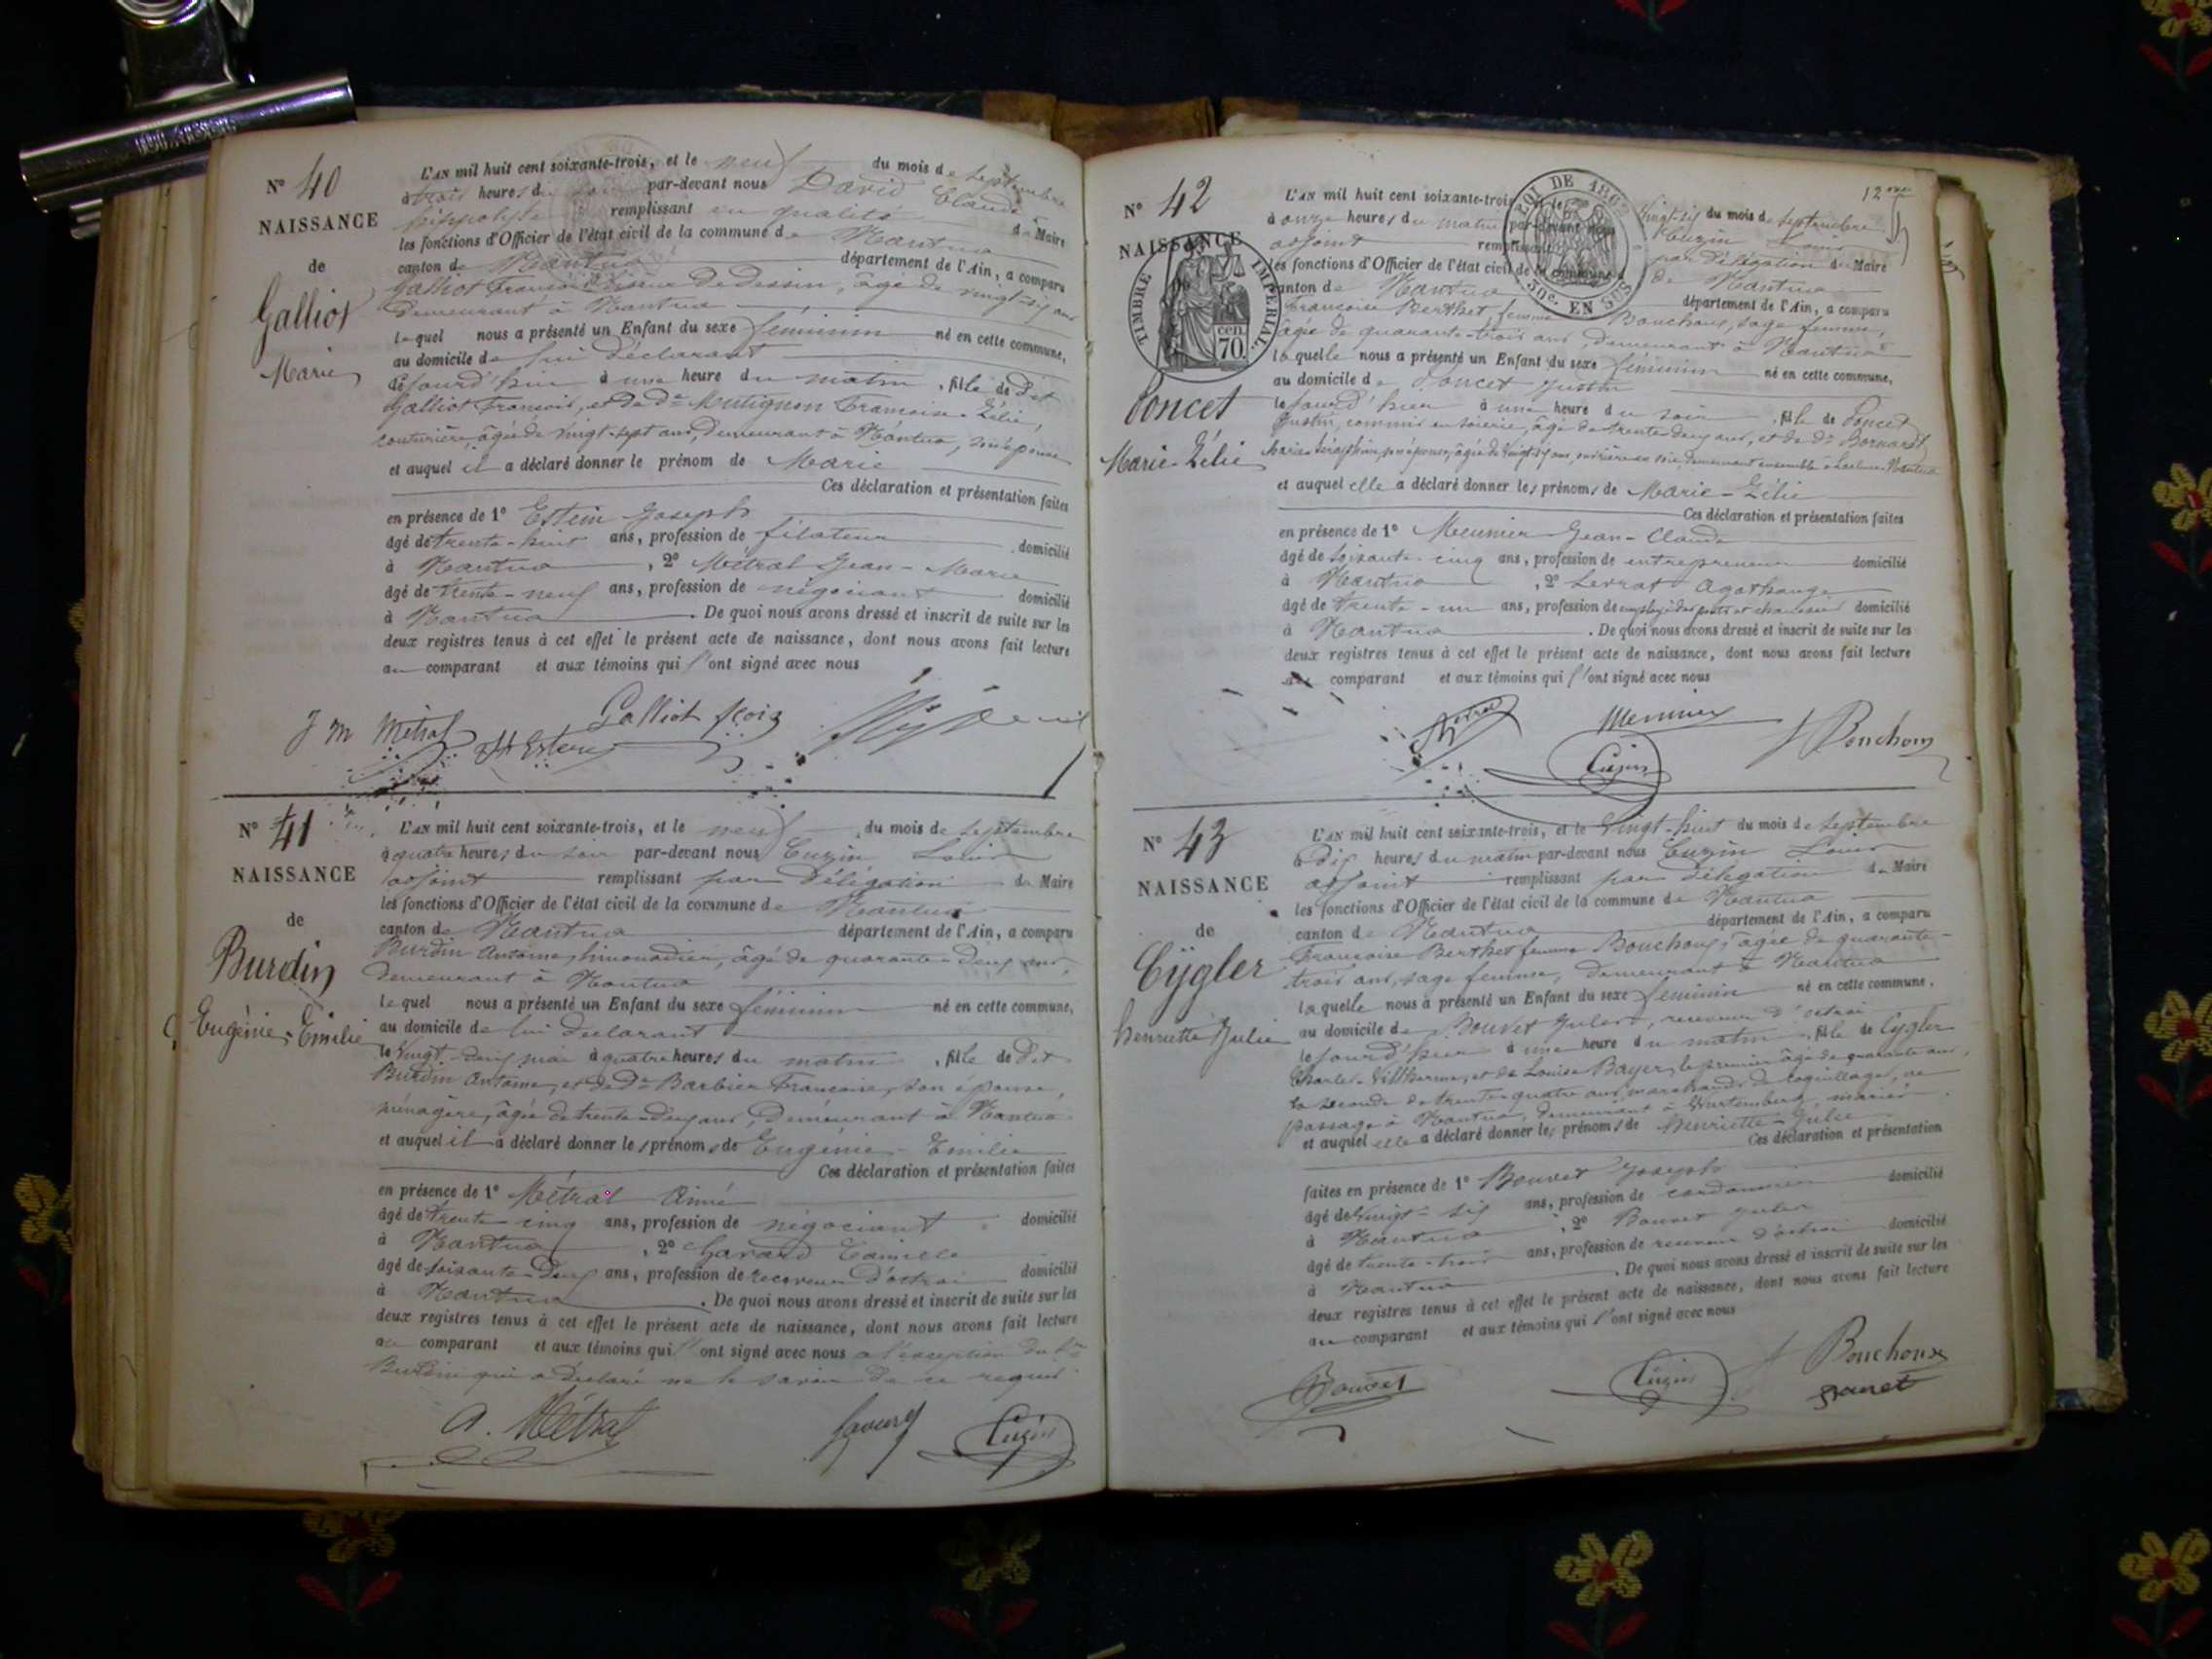 N° 40
NAISSANCE
de
Galliot
Marie
L'AN mil huit cent soixante-trois, et le neuf du mois de Septembre
à trois heures du soir par-devant nous David Claude
hippolyte remplissant en qualité de Maire
les fonctions d'Officier de l'état civil de la commune de Nantua
canton de Nantua département de l'Ain, a comparu
Galliot François, liseur de dessin, âgé de vingt-six ans
demeurant à Nantua
lequel nous a présenté un Enfant du sexe féminin né en cette commune,
au domicile de lui déclarant
le jourd'hui à une heure du matin, fille de dit
Galliot François, et de De Mutignon Françoise Zélie,
couturière, âgée de vingt-sept ans, demeurant à Nantua, son épouse
et auquel il a déclaré donner le prénom de Marie
Ces déclaration et présentation faites
en présence de 1° Estein Joseph
âgé de trente-huit ans, profession de filateur domicilié
à Nantua, 2° Métral Jean-Marie
âgé de trente-neuf ans, profession de négociant domicilié
à Nantua. De quoi nous avons dressé et inscrit de suite sur les
deux registres tenus à cet effet le présent acte de naissance, dont nous avons fait lecture
au comparant et aux témoins qui l'ont signé avec nous
J M Métral Galliot fçois
N° 41
NAISSANCE
de
Burdin
Eugénie-Emilie
L'AN mil huit cent soixante-trois, et le neuf du mois de Septembre
à quatre heures du soir par-devant nous Cuzin Louis
adjoint remplissant par délégation du Maire
les fonctions d'Officier de l'état civil de la commune de Nantua
canton de Nantua département de l'Ain, a comparu
Burdin Antoine, limonadier, âgé de quarante-deux ans,
demeurant à Nantua
lequel nous a présenté un Enfant du sexe féminin né en cette commune,
au domicile de lui déclarant
le vingt-deux mai à quatre heures du matin, fille de dit
Burdin Antoine, et de De Barbier Françoise, son épouse,
ménagère, âgée de trente-deux ans, demeurant à Nantua
et auquel il a déclaré donner les prénoms de Eugénie-Emilie
Ces déclaration et présentation faites
en présence de 1° Métral Aimé
âgé de trente-cinq ans, profession de négociant domicilié
à Nantua, 2° Camille
âgé de soixante-deux ans, profession de receveur d'octroi domicilié
à Nantua. De quoi nous avons dressé et inscrit de suite sur les
deux registres tenus à cet effet le présent acte de naissance, dont nous avons fait lecture
au comparant et aux témoins qui l'ont signé avec nous a l'exception du Sr
Burdin qui a déclaré ne le savoir de ce requis
A. Métral Cuzin
12me
N° 42
NAISSANCE
TIMBRE IMPERIAL
cen. 70
LOI DE 1862
50c. EN SUS
Poncet
Marie-Zélie
L'AN mil huit cent soixante-trois, et le vingt-six du mois de Septembre
à onze heures du matin par-devant nous Cuzin Louis
adjoint remplissant par délégation du Maire
les fonctions d'Officier de l'état civil de la commune de Nantua
canton de Nantua département de l'Ain, a comparu
Françoise Berthet, femme Bouchoux, sage femme,
âgée de quarante-trois ans demeurant à Nantua
laquelle nous a présenté un Enfant du sexe féminin né en cette commune,
au domicile de Poncet Justin
le jourd'hier à une heure du soir, fille de Poncet
Justin, commis en soierie, âgé de trente-deux ans, et de De Bornard
Marie Séraphine, son épouse, âgée de vingt-six ans, ouvrière en soie, demeurant ensemble Nantua
et auquel elle a déclaré donner les prénoms de Marie-Zélie
Ces déclaration et présentation faites
en présence de 1° Meunier Jean-Claude
âgé de soixante-cinq ans, profession de entrepreneur domicilié
à Nantua, 2° Levrat Agathange
âgé de trente-un ans, profession de employé des ponts et chaussées domicilié
à Nantua. De quoi nous avons dressé et inscrit de suite sur les
deux registres tenus à cet effet le présent acte de naissance, dont nous avons fait lecture
comparant et aux témoins qui l'ont signé avec nous
Meunier
Cuzin
f Bouchoux
N° 43
NAISSANCE
de
Cygler
henriette Julie
L'AN mil huit cent soixante-trois, et le vingt-huit du mois de Septembre
à dix heures du matin par-devant nous Cuzin Louis
adjoint remplissant par délégation du Maire
les fonctions d'Officier de l'état civil de la commune de Nantua
canton de Nantua département de l'Ain, a comparu
Françoise Berthet femme Bouchoux, âgée de quarante-
trois ans, sage femme, demeurant à Nantua
laquelle nous a présenté un Enfant du sexe féminin né en cette commune,
au domicile de Bouvet Jules, receveur d'octroi
le jourd'hier à une heure du matin, fille de Cygler
Charles-Villherme, et de Louise Bayer, le premier âgé de quarante ans,
la seconde de trente-quatre ans, marchands de coquillages, de
passage à Nantua, demeurant à Wurtemberg, mariés
et auquel elle a déclaré donner les prénoms de henriette-Julie
Ces déclaration et présentation
faites en présence de 1° Bouvet Joseph
âgé de vingt-six ans, profession de cordonnier domicilié
à Nantua, 2° Bouvet Jules
âgé de trente-trois ans, profession de receveur d'octroi domicilié
à Nantua. De quoi nous avons dressé et inscrit de suite sur les
deux registres tenus à cet effet le présent acte de naissance, dont nous avons fait lecture
au comparant et aux témoins qui l'ont signé avec nous
Bouvet Cuzin f Bouchoux